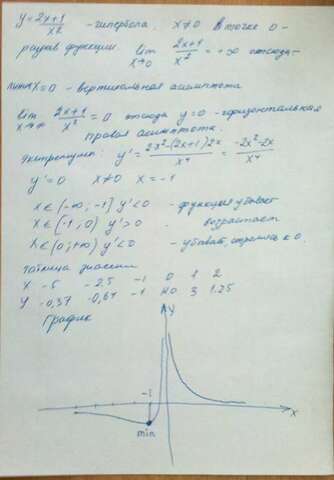 y = 2x+1 / x² - гипербола. x≠0 В точке 0 -
разрыв функции. lim x→0 2x+1 / x² = +∞ отсюда -
линия x=0 - вертикальная асимптота
lim x→∞ 2x+1 / x² = 0 отсюда y=0 - горизонтальная
правая асимптота.
Экстремумы: y' = 2x²-(2x+1)2x / x⁴ = -2x²-2x / x⁴
y'=0 x≠0 x=-1
x∈(-∞,-1] y'<0 - функция убывает
x∈[-1,0) y'>0 - возрастает
x∈(0;+∞) y'<0 - убывает, стремясь к 0.
Таблица значений
x -5 -2.5 -1 0 1 2
y -0,37 -0,64 -1 НО 3 1.25
График
y
-1
x
min